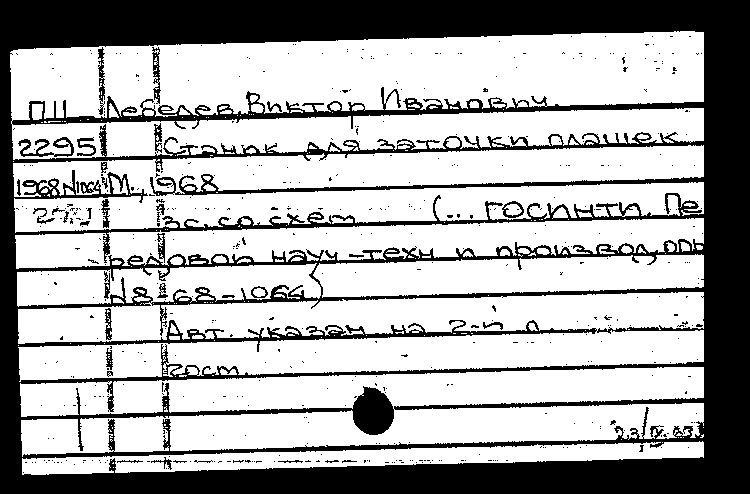 ПII Лебедев, Виктор Иванович.
2295 Станок для заточки плашек
1968 №1064 М., 1968
3с. со схем (... ГОСИНТИ. Пе
редовой науч-техн и производ. опы
№8-68-1064)
Авт. указан на 2-й с.
20ст.